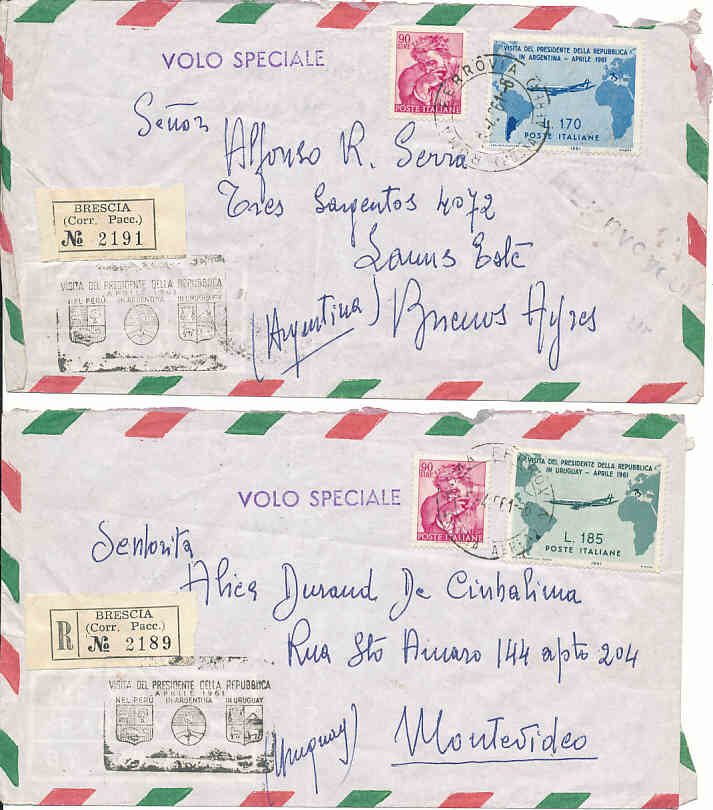 VOLO SPECIALE
90
LIRE
POSTE ITALIANE
VISITA DEL PRESIDENTE DELLA REPUBBLICA
IN ARGENTINA - APRILE 1961
L. 170
POSTE ITALIANE
1961
FERROVIA
ROMA
Señor
Alfonso R. Serra
Tres Sargentos 4072
Lanus Este
(Argentina) Buenos Ayres
BRESCIA
(Corr. Pacc.)
№ 2191
VISITA DEL PRESIDENTE DELLA REPUBBLICA
1961
NEL PERÚ IN ARGENTINA IN URUGUAY
VOLO SPECIALE
90
LIRE
POSTE ITALIANE
VISITA DEL PRESIDENTE DELLA REPUBBLICA
IN URUGUAY - APRILE 1961
L. 185
POSTE ITALIANE
1961
Senhorita
Alica Durand De Cinhalima
Rua Sto Amaro 144 apto 204
Montevideo
(Uruguay)
R
BRESCIA
(Corr. Pacc.)
№ 2189
VISITA DEL PRESIDENTE DELLA REPUBBLICA
APRILE 1961
NEL PERÚ IN ARGENTINA IN URUGUAY